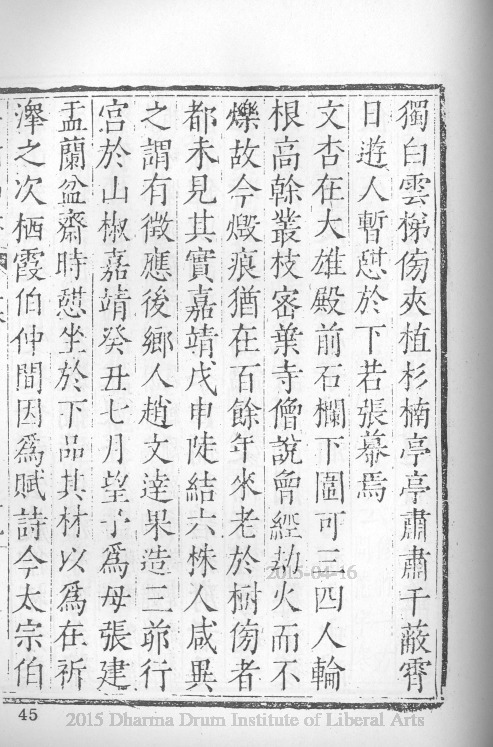 獨白雲梯傍夾植杉楠亭亭肅肅干蔽霄
日遊人暫憇於下若張幕焉
文杏在大雄殿前石欄下圍可三四人輪
根高榦叢枝密葉寺僧說曾經劫火而不
爍故今燬痕猶在百餘年來老於樹傍者
都未見其實嘉靖戊申陡結六株人咸異
之謂有徵應後鄉人趙文達果造三茆行
宮於山椒嘉靖癸丑七月望予爲母張建
盂蘭盆齋時憇坐於下品其材以爲在祈
澤之次栖霞伯仲間因爲賦詩今太宗伯
45
2015-04-16
2015 Dharma Drum Institute of Liberal Arts